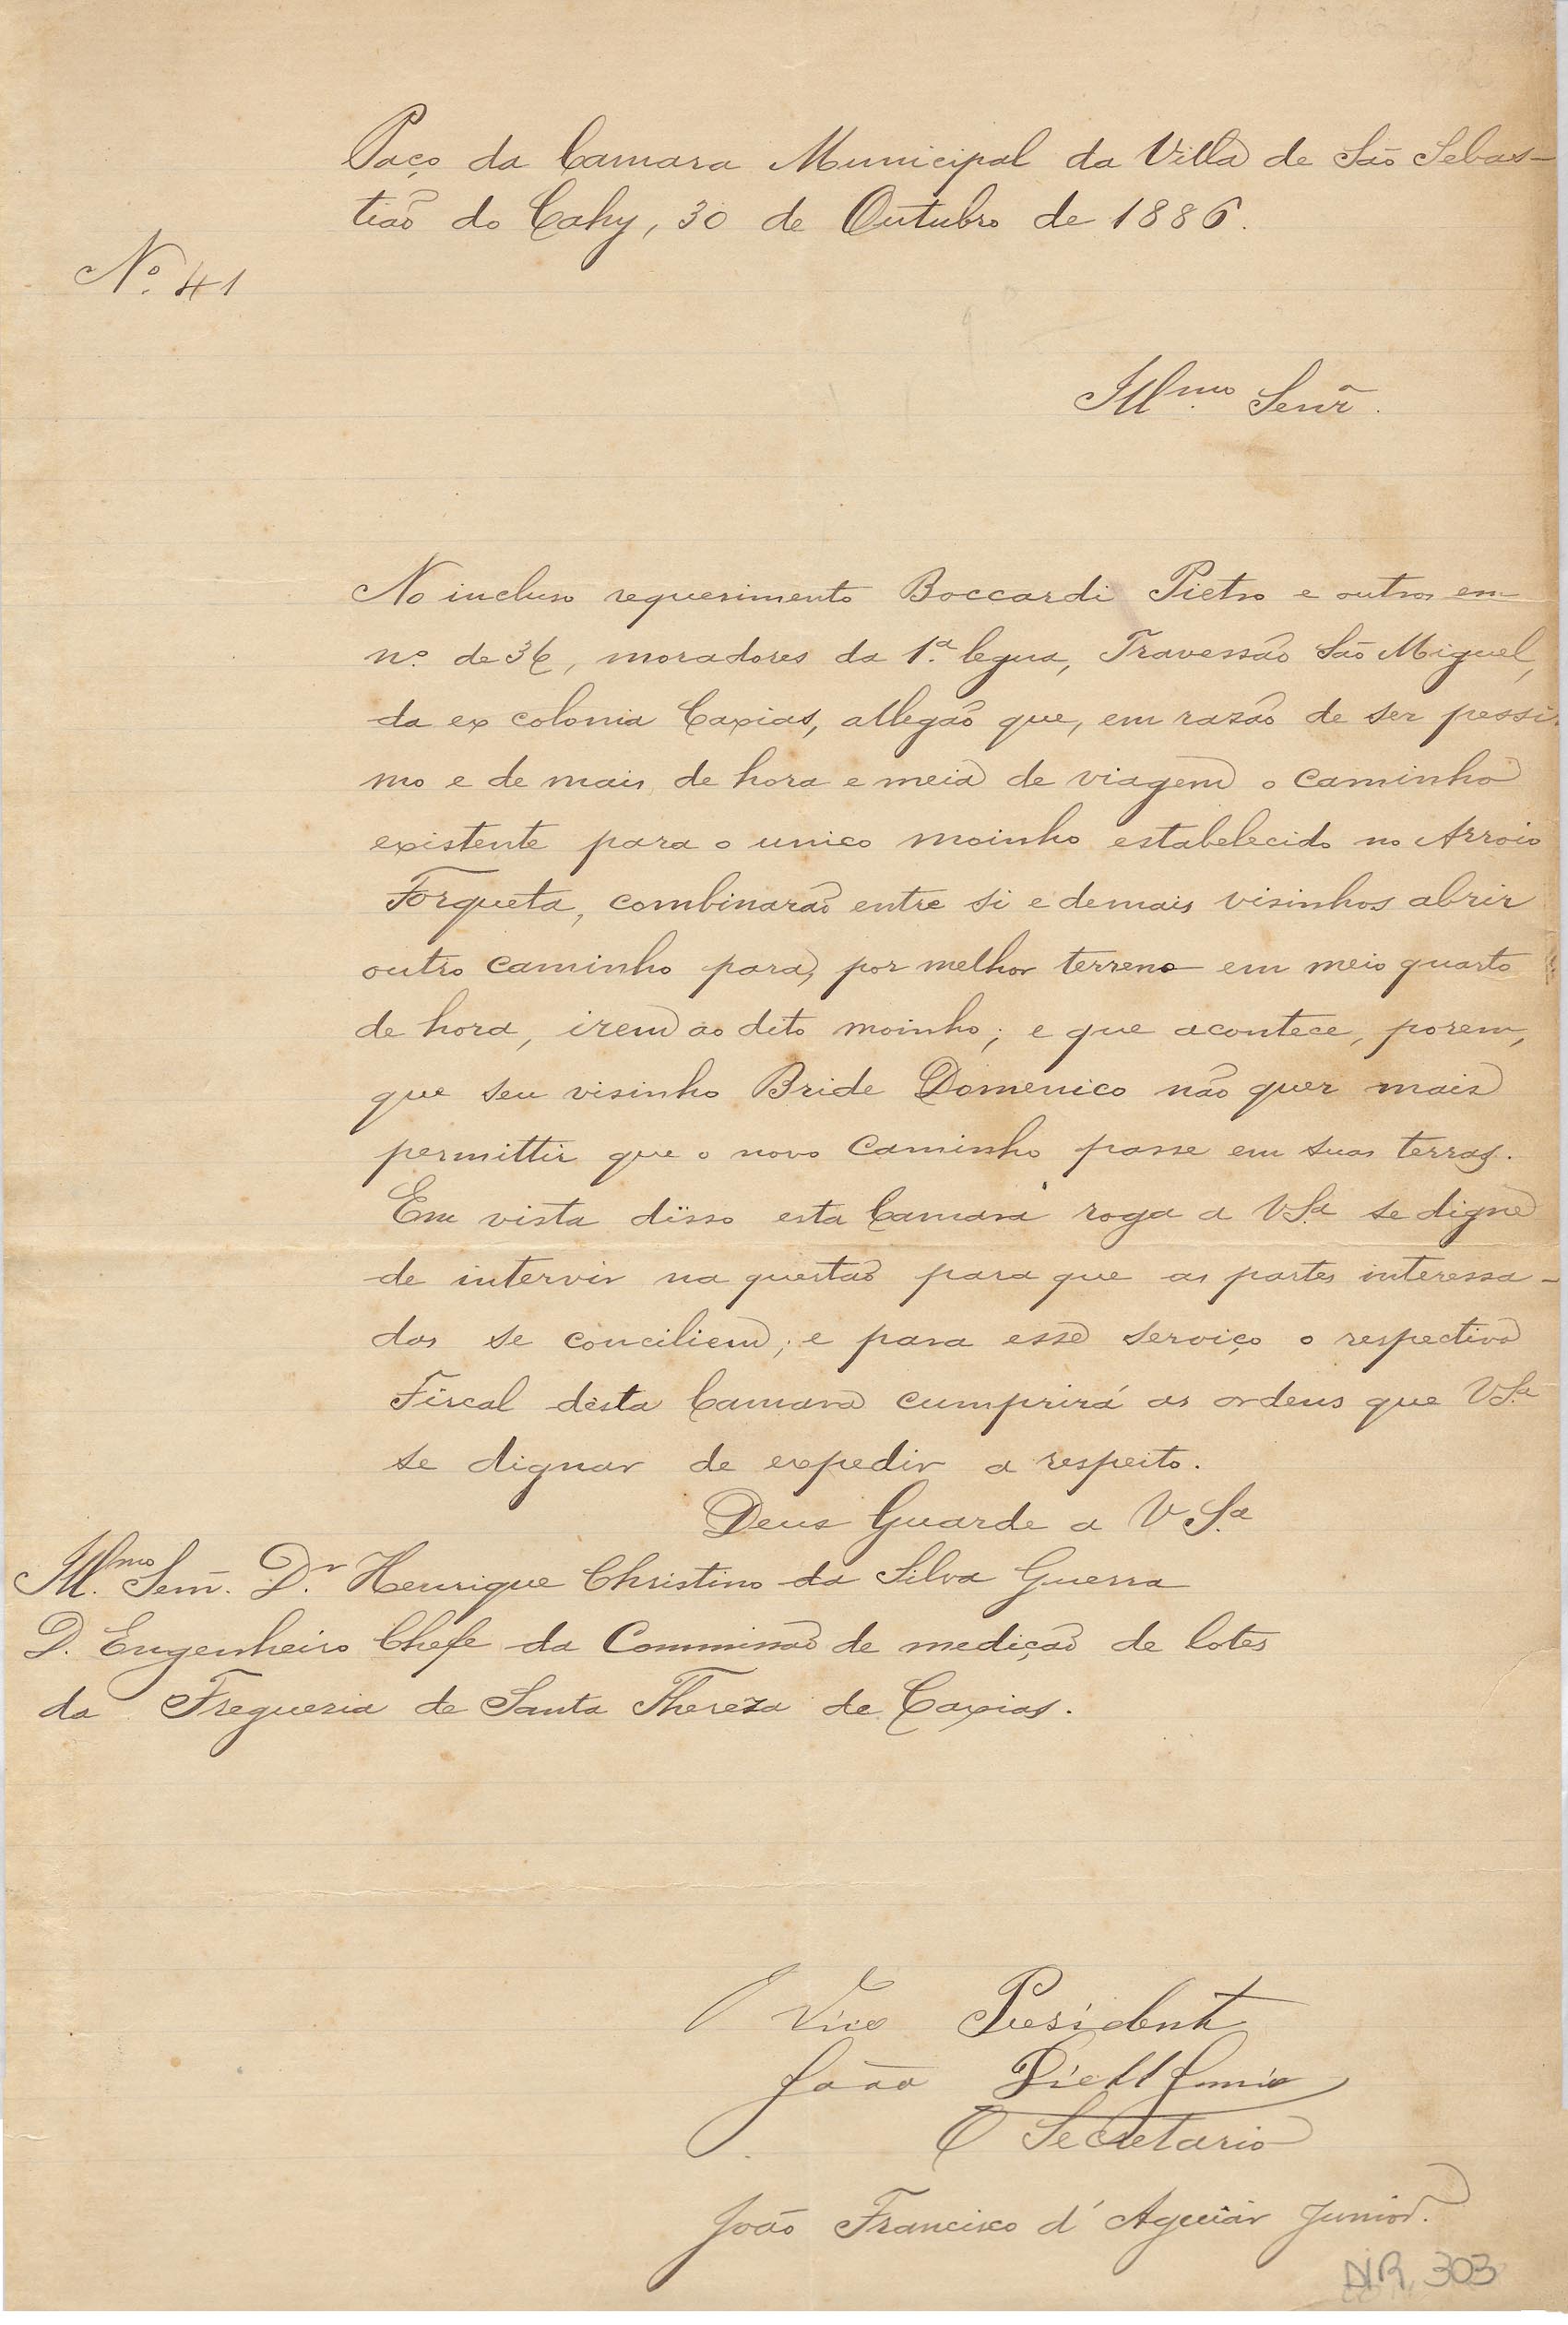 Paço da Camara Municipal da Villa de São Sebas-
tião do Cahy, 30 de Outubro de 1886.
Nº. 41
Illmo. Senr.
No incluso requerimento Boccardi Pietro e outros em
nº. de 36, moradores da 1.ª legua, Travessão São Miguel,
da ex colonia Caxias, allegão que, em razão de ser pessi-
mo e de mais de hora e meia de viagem o caminho
existente para o unico moinho estabelecido no Arroio
Forqueta, combinarão entre si e demais visinhos abrir
outro caminho para, por melhor terreno em meio quarto
de hora, irem ao dito moinho; e que acontece, porem,
que seu visinho Bride Domenico não quer mais
permittir que o novo caminho passe em suas terras.
Em vista disso esta Camara roga a VSª se digne
de intervir na questão para que as partes interessa-
das se conciliem; e para esse serviço o respectivo
Fiscal desta Camara cumprirá as ordens que VSª
se dignar de expedir a respeito.
Deus Guarde a V Sª
Illmo. Senr. Dr. Henrique Christino da Silva Guerra
D. Engenheiro Chefe da Commissão de medição de lotes
da Freguezia de Santa Thereza de Caxias.
O Vice President
João
O Secretario
João Francisco d'Aguiar Junior.
NR. 303